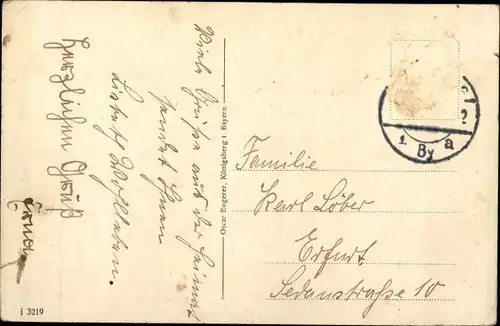 Viele Grüße aus der Heimat
sendet Ihnen
Herzlichen Gruß
Oscar Engerer, Königsberg i. Bayern.
Familie
Karl Löber
Erfurt
Sedanstraße 10
i. By a
i 3219